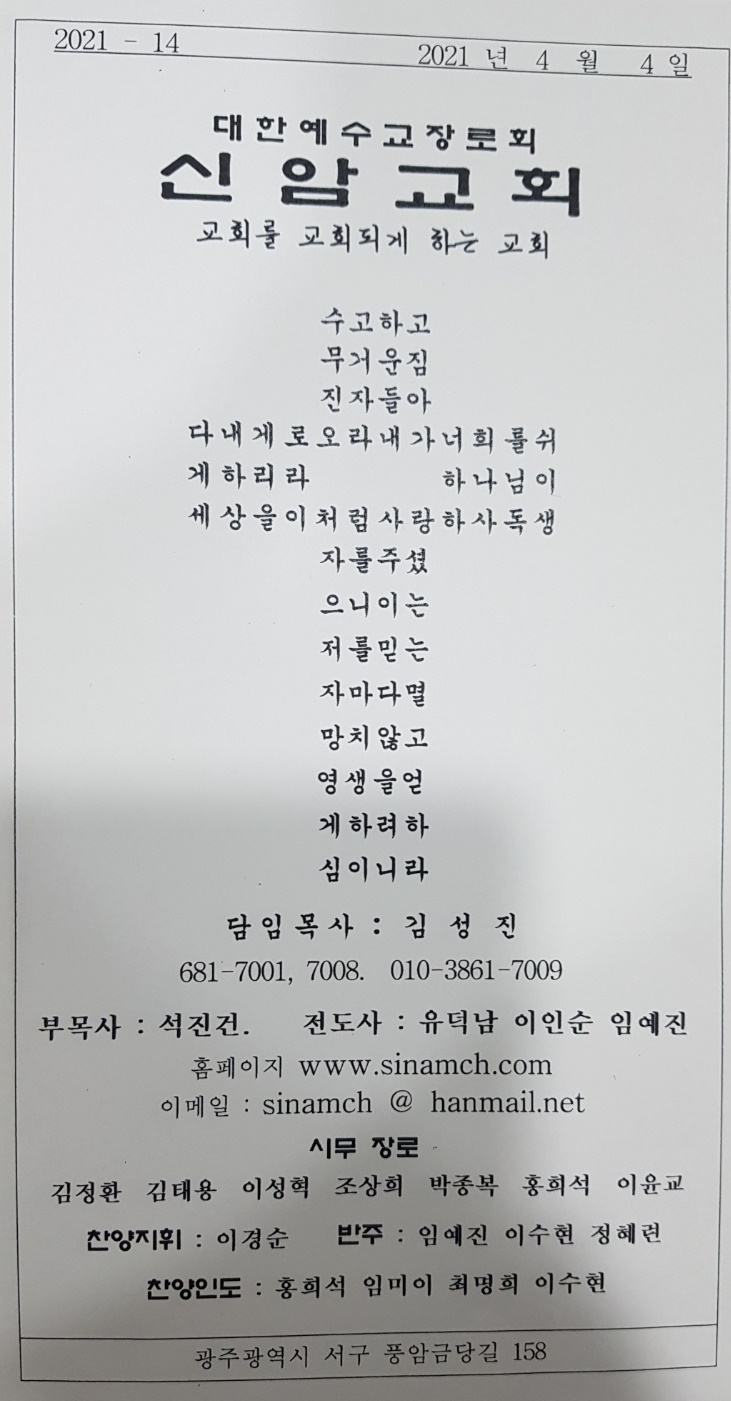 2021 - 14
2021 년 4 월 4 일
대한예수교장로회
신암교회
교회를 교회되게 하는 교회
수고하고
무거운짐
진자들아
다내게로오라내가너희를쉬
게하리라 하나님이
세상을이처럼사랑하사독생
자를주셨
으니이는
저를믿는
자마다멸
망치않고
영생을얻
게하려하
심이니라
담임목사 : 김 성 진
681-7001, 7008. 010-3861-7009
부목사 : 석진건. 전도사 : 유덕남 이인순 임예진
홈페이지 www.sinamch.com
이메일 : sinamch @ hanmail.net
시무 장로
김정환 김태용 이성혁 조상희 박종복 홍희석 이윤교
찬양지휘 : 이경순 반주 : 임예진 이수현 정혜련
찬양인도 : 홍희석 임미이 최명희 이수현
광주광역시 서구 풍암금당길 158